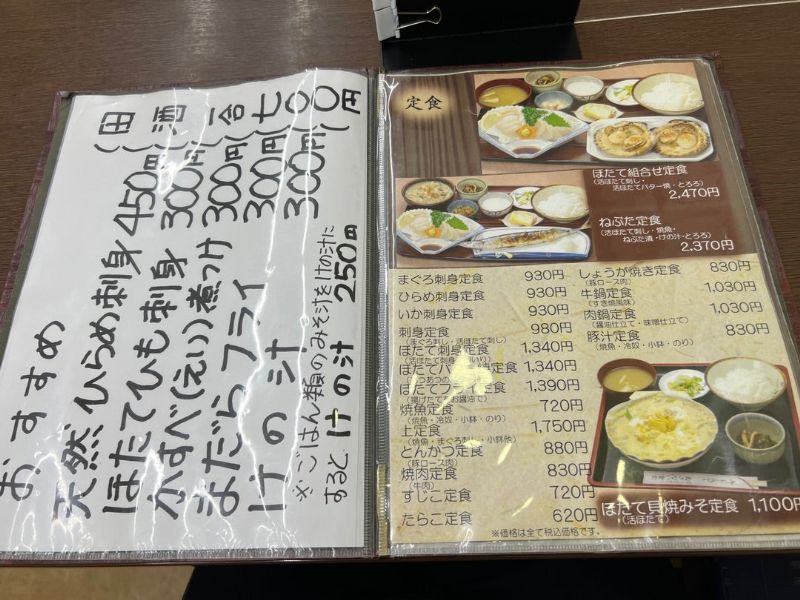 おすすめ
天然ひらめ刺身 450円
ほたてひも刺身 300円
かすべ(えい)煮つけ 300円
まだらフライ 300円
けの汁 300円
※ごはん類のみそ汁をけの汁に
すると けの汁 250円
田酒一合七〇〇円
定食
ほたて組合せ定食
(活ほたて刺し・
活ほたてバター焼・とろろ)
2,470円
ねぶた定食
(活ほたて刺し・焼魚・
ねぶた漬・けの汁・とろろ)
2,370円
まぐろ刺身定食 930円
ひらめ刺身定食 930円
いか刺身定食 930円
刺身定食 980円
(まぐろ刺し・活ほたて刺し)
ほたて刺身定食 1,340円
ほたてバター焼定食 1,340円
ほたてフライ定食 1,390円
(揚げたてをお醤油で)
焼魚定食 720円
(焼魚・冷奴・小鉢・のり)
上定食 1,750円
(焼魚・まぐろ刺し・小鉢他)
とんかつ定食 880円
(豚ロース肉)
焼肉定食 830円
(牛肉)
すじこ定食 720円
たらこ定食 620円
しょうが焼き定食 830円
(豚ロース肉)
牛鍋定食 1,030円
(すき焼風味)
肉鍋定食 1,030円
(醤油仕立て・味噌仕立て)
豚汁定食 830円
(焼魚・冷奴・小鉢・のり)
ほたて貝焼みそ定食 1,100円
(活ほたて)
※価格は全て税込価格です。